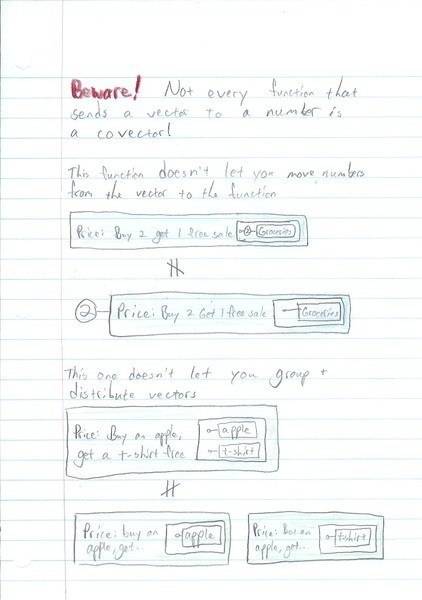 Beware! Not every function that
sends a vector to a number is
a covector!
This function doesn't let you move numbers
from the vector to the function
Price: Buy 2 get 1 free sale 2 Groceries
≠
2 Price: Buy 2 Get 1 free sale Groceries
This one doesn't let you group +
distribute vectors
Price: Buy an apple, apple
get a t-shirt free t-shirt
≠
Price: buy an apple
apple, get...
Price: Buy an t-shirt
apple, get...